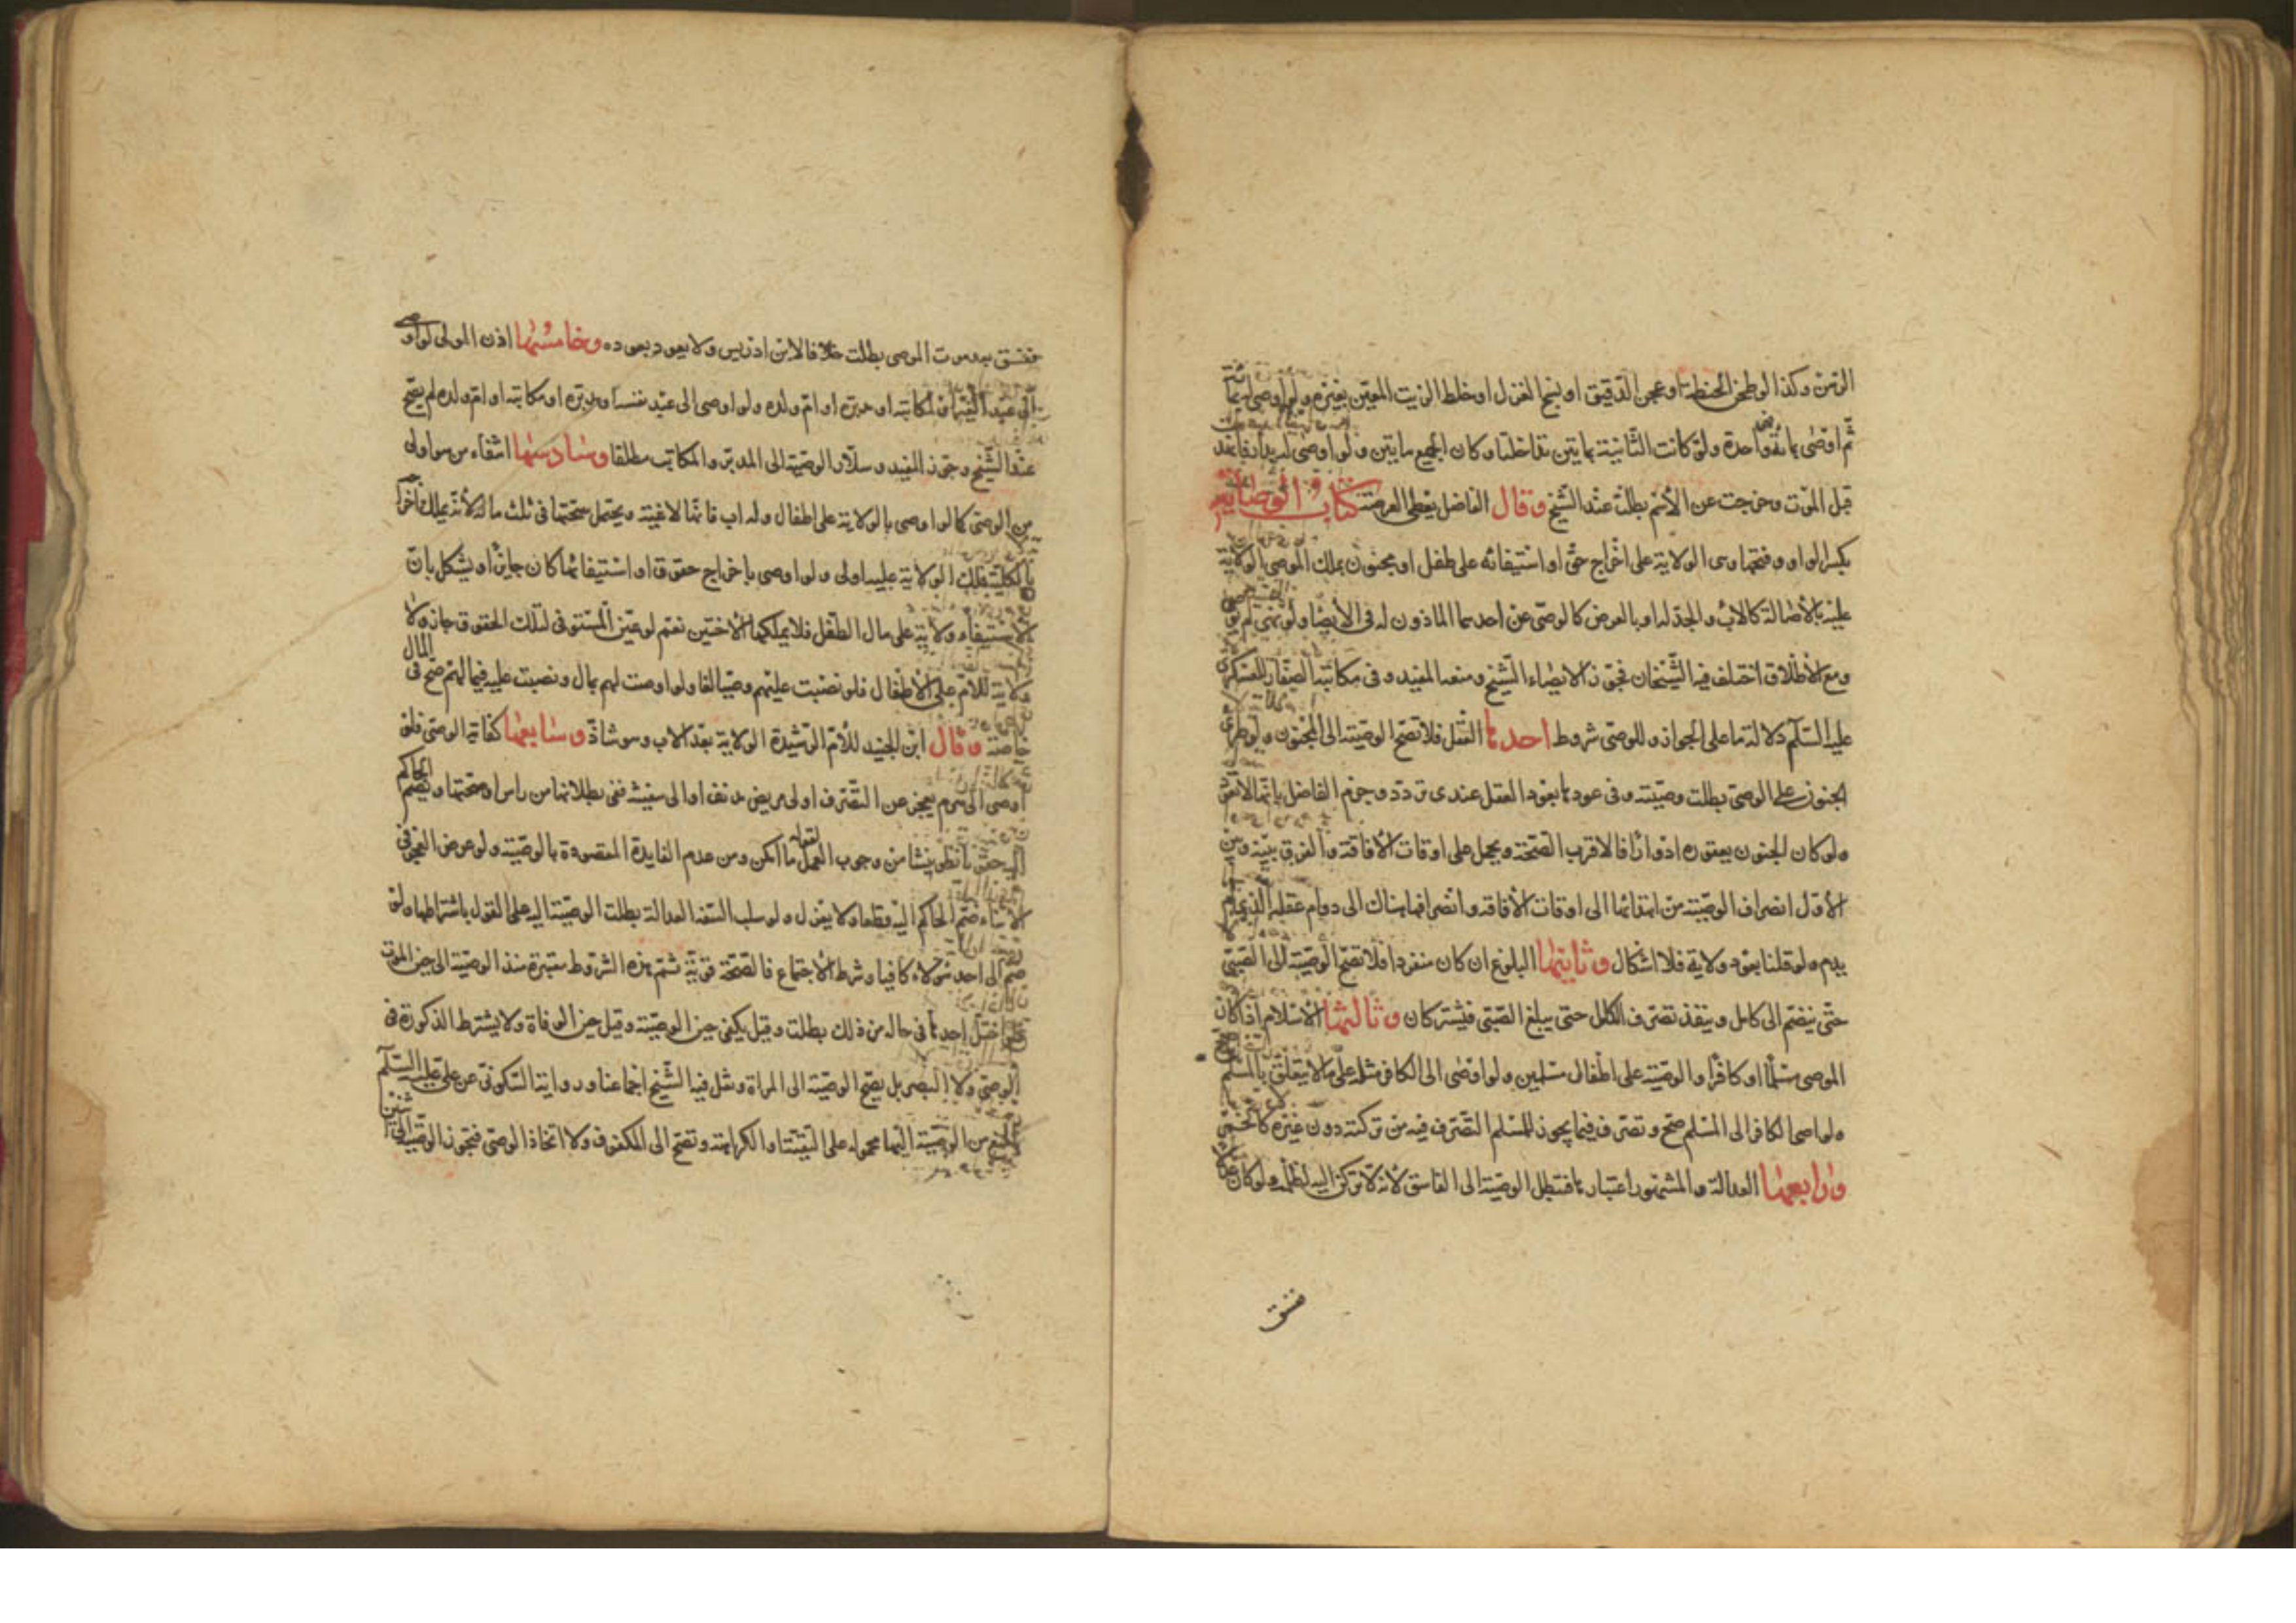 الزمن وكذا لو طحن الحنطة او عجن الدقيق او نسج الغزل او خلط الزيت المعين بغيره ولو اوصى بمائة
ثم اوصى بمائة فواحدة ولو كانت الثانية بمايتين تداخلتا وكان الجميع مايتين ولو اوصى
قبل الموت وخرجت عن الاسم بطلت عند الشيخ وقال الفاضل يعطى العرصة كتاب الوصاية
بكسر الواو وفتحها وهى الولاية على اخراج حق او استيفائه على طفل او مجنون يملك الموصى الولاية
عليه بالأصالة كالاب والجد له او بالعرض كالوصى عن احدهما الماذون له فى الايصا ولو نهى لم يوص
ومع الاطلاق اختلف فيه الشيخان فجوز الايصاء الشيخ ومنعه المفيد وفى مكاتبة الصفار للعسكرى
عليه السلم دلالة ما على الجواز وللوصى شروط احدها العقل فلا تصح الوصية الى المجنون ولو طرى
الجنون على الوصى بطلت وصيته وفى عودها بعود العقل عندى تردد وجزم الفاضل بانها لا تعود
ولو كان الجنون يعتوره ادوارا فالاقرب الصحة ويحمل على اوقات الافاقة والفرق بينه وبين
الأول انصراف الوصية من ابتدائها الى اوقات الافاقة وانصرافها هناك الى دوام عقله الذى لم
يدم ولو قلنا بعود ولايته فلا اشكال وثانيها البلوغ ان كان منفردا فلا تصح الوصية الى الصبى
حتى ينضم الى كامل وينفذ تصرف الكامل حتى يبلغ الصبى فيشتركان وثالثها الاسلام اذا كان
الموصى مسلما او كافرا والوصية على اطفال مسلمين ولو اوصى الى الكافر مثله على ما لا يتعلق بالمسلم
ولو اوصى الكافر الى المسلم صح وتصرف فيما يجوز للمسلم التصرف فيه من تركته دون غيره كالخمر
ورابعها العدالة والمشهور اعتبارها فتبطل الوصية الى الفاسق لانه لا تركن اليه لظلمه ولو كان
فسق
ففسق بعد موت الموصى بطلت خلافا لابن ادريس ولا يعود بعوده وخامسها اذن المولى لو اوصى
الى عبد الغير او مكاتبه او مدبره او ام ولده ولو اوصى الى عبد نفسه او مدبره او مكاتبه او ام ولده لم يصح
عند الشيخ وجوز المفيد وسلار الوصية الى المدبر والمكاتب مطلقا وسادسها انتفاء من هو اولى
من الوصى كما لو اوصى بالولاية على اطفال وله اب فانها لاغية ويحتمل صحتها فى ثلث ماله لأنه يملك اخراجه
بالكلية فملك الولاية عليه اولى ولو اوصى باخراج حقوق او استيفائها كان جايزا ويشكل بان
الاستيفاء ولاية على مال الطفل فلا يملكها الأختين نعم لو عين المستوفى لتلك الحقوق جاز ولا
ولاية للام على الأطفال فلو نصبت عليهم وصيا لغا ولو اوصت لهم بمال ونصبت عليه فيما لهم صح فى المال
خاصة وقال ابن الجنيد للأم الرشيدة الولاية بعد الاب وهو شاذ وسابعها كفاية الوصى فلو
اوصى الى هرم يعجز عن التصرف او الى مريض مدنف او الى سفيه ففى بطلانها من راس او صحتها ويضم الحاكم
اليه نظر ينشا من وجوب العمل بقوله ما امكن ومن عدم الفايدة المقصودة بالوصية ولو عرض العجز فى
الاثناء ضم الحاكم اليه قطعا ولا يعزل ولو سلب السفه العدالة بطلت الوصية اليه على القول باشتراطها ولو
ضم الى احد هؤلاء كافيا وشرط الاجتماع فالصحة قوية ثم هذه الشروط معتبرة منذ الوصية الى حين الموت
فلو اختل احدها فى حاله من ذلك بطلت وقيل يكفى حين الوصية وقيل حين الوفاة ولا يشترط الذكورة فى
الوصى ولا البصر بل يصح الوصية الى المراة ونقل فيه الشيخ اجماعنا ورواية السكونى عن على عليه السلم
بالمنع من الوصية اليها محمولة على التقية او الكراهة وتصح الى المكفوف ولا اتحاذ الوصى فتجوز الوصية الى اثنين